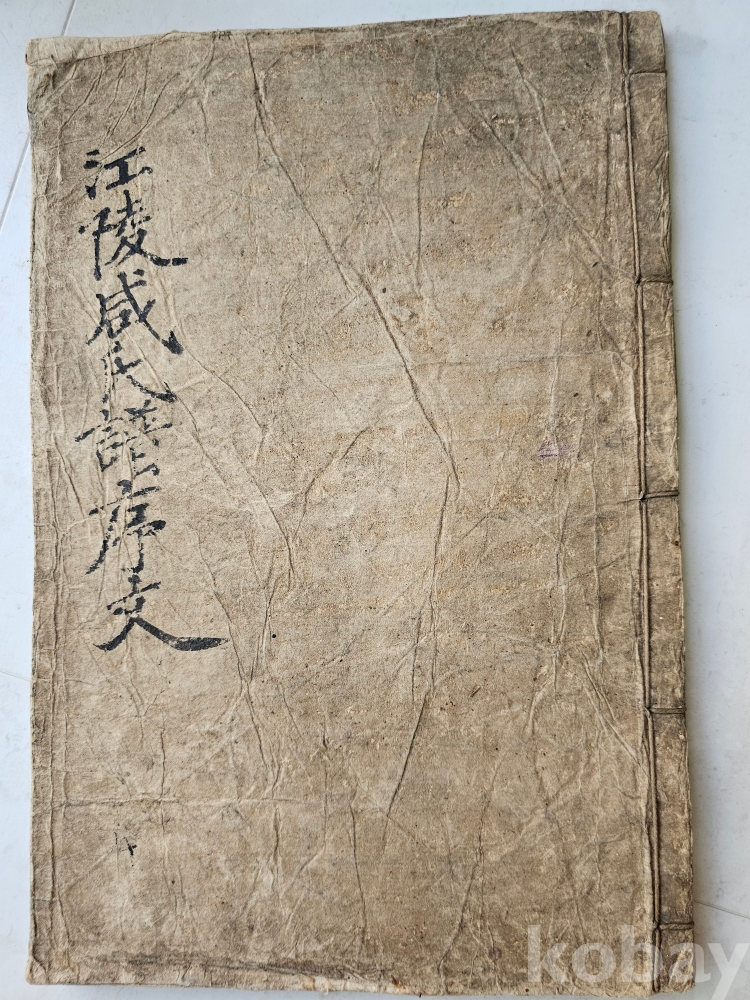 江陵咸氏譜序文
kobay